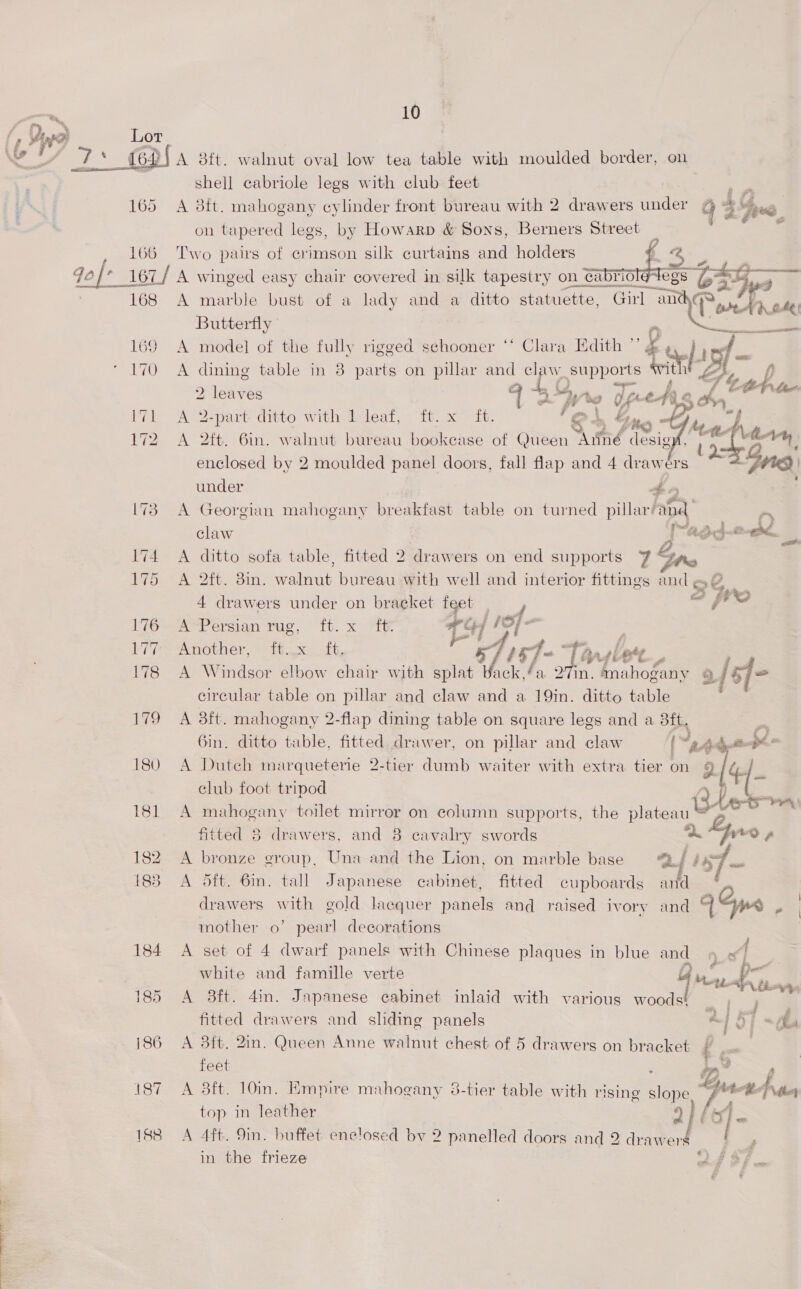 10
Lot
7 164 A 3ft. walnut oval low tea table with moulded border, on
shell cabriole legs with club feet
165 A 3ft. mahogany cylinder front bureau with 2 drawers under
on tapered legs, by Howard & Sons, Berners Street
166 Two pairs of crimson silk curtains and holders
167 A winged easy chair covered in silk tapestry on cabriole legs
168 A marble bust of a lady and a ditto statuette, Girl and
Butterfly
169 A model of the fully rigged schooner “ Clara Edith ”
170 A dining table in 3 parts on pillar and claw supports with
2 leaves
171 A 2-part ditto with 1 leaf, ft. x ft.
172 A 2ft. 6in. walnut bureau bookcase of Queen Anne design,
enclosed by 2 moulded panel doors, fall flap and 4 drawers
under
173 A Georgian mahogany breakfast table on turned pillar and
claw
174 A ditto sofa table, fitted 2 drawers on end supports
175 A 2ft. 3in. walnut bureau with well and interior fittings and
4 drawers under on bracket feet
176 A Persian rug, ft. x ft.
177 Another, ft. x ft.
178 A Windsor elbow chair with splat back, a 27in. mahogany
circular table on pillar and claw and a 19in. ditto table
179 A 3ft. mahogany 2-flap dining table on square legs and a 3ft.
6in. ditto table, fitted drawer, on pillar and claw
180 A Dutch marqueterie 2-tier dumb waiter with extra tier on
club foot tripod
181 A mahogany toilet mirror on column supports, the plateau
fitted 3 drawers, and 3 cavalry swords
182 A bronze group, Una and the Lion, on marble base
183 A 5ft. 6in. tall Japanese cabinet, fitted cupboards and
drawers with gold lacquer panels and raised ivory and
mother o’ pearl decorations
184 A set of 4 dwarf panels with Chinese plaques in blue and
white and famille verte
185 A 3ft. 4in. Japanese cabinet inlaid with various woods
fitted drawers and sliding panels
186 A 3ft. 2in. Queen Anne walnut chest of 5 drawers on bracket
feet
187 A 3ft. 10in. Empire mahogany 3-tier table with rising slope
top in leather
188 A 4ft. 9in. buffet enclosed by 2 panelled doors and 2 drawers
in the frieze